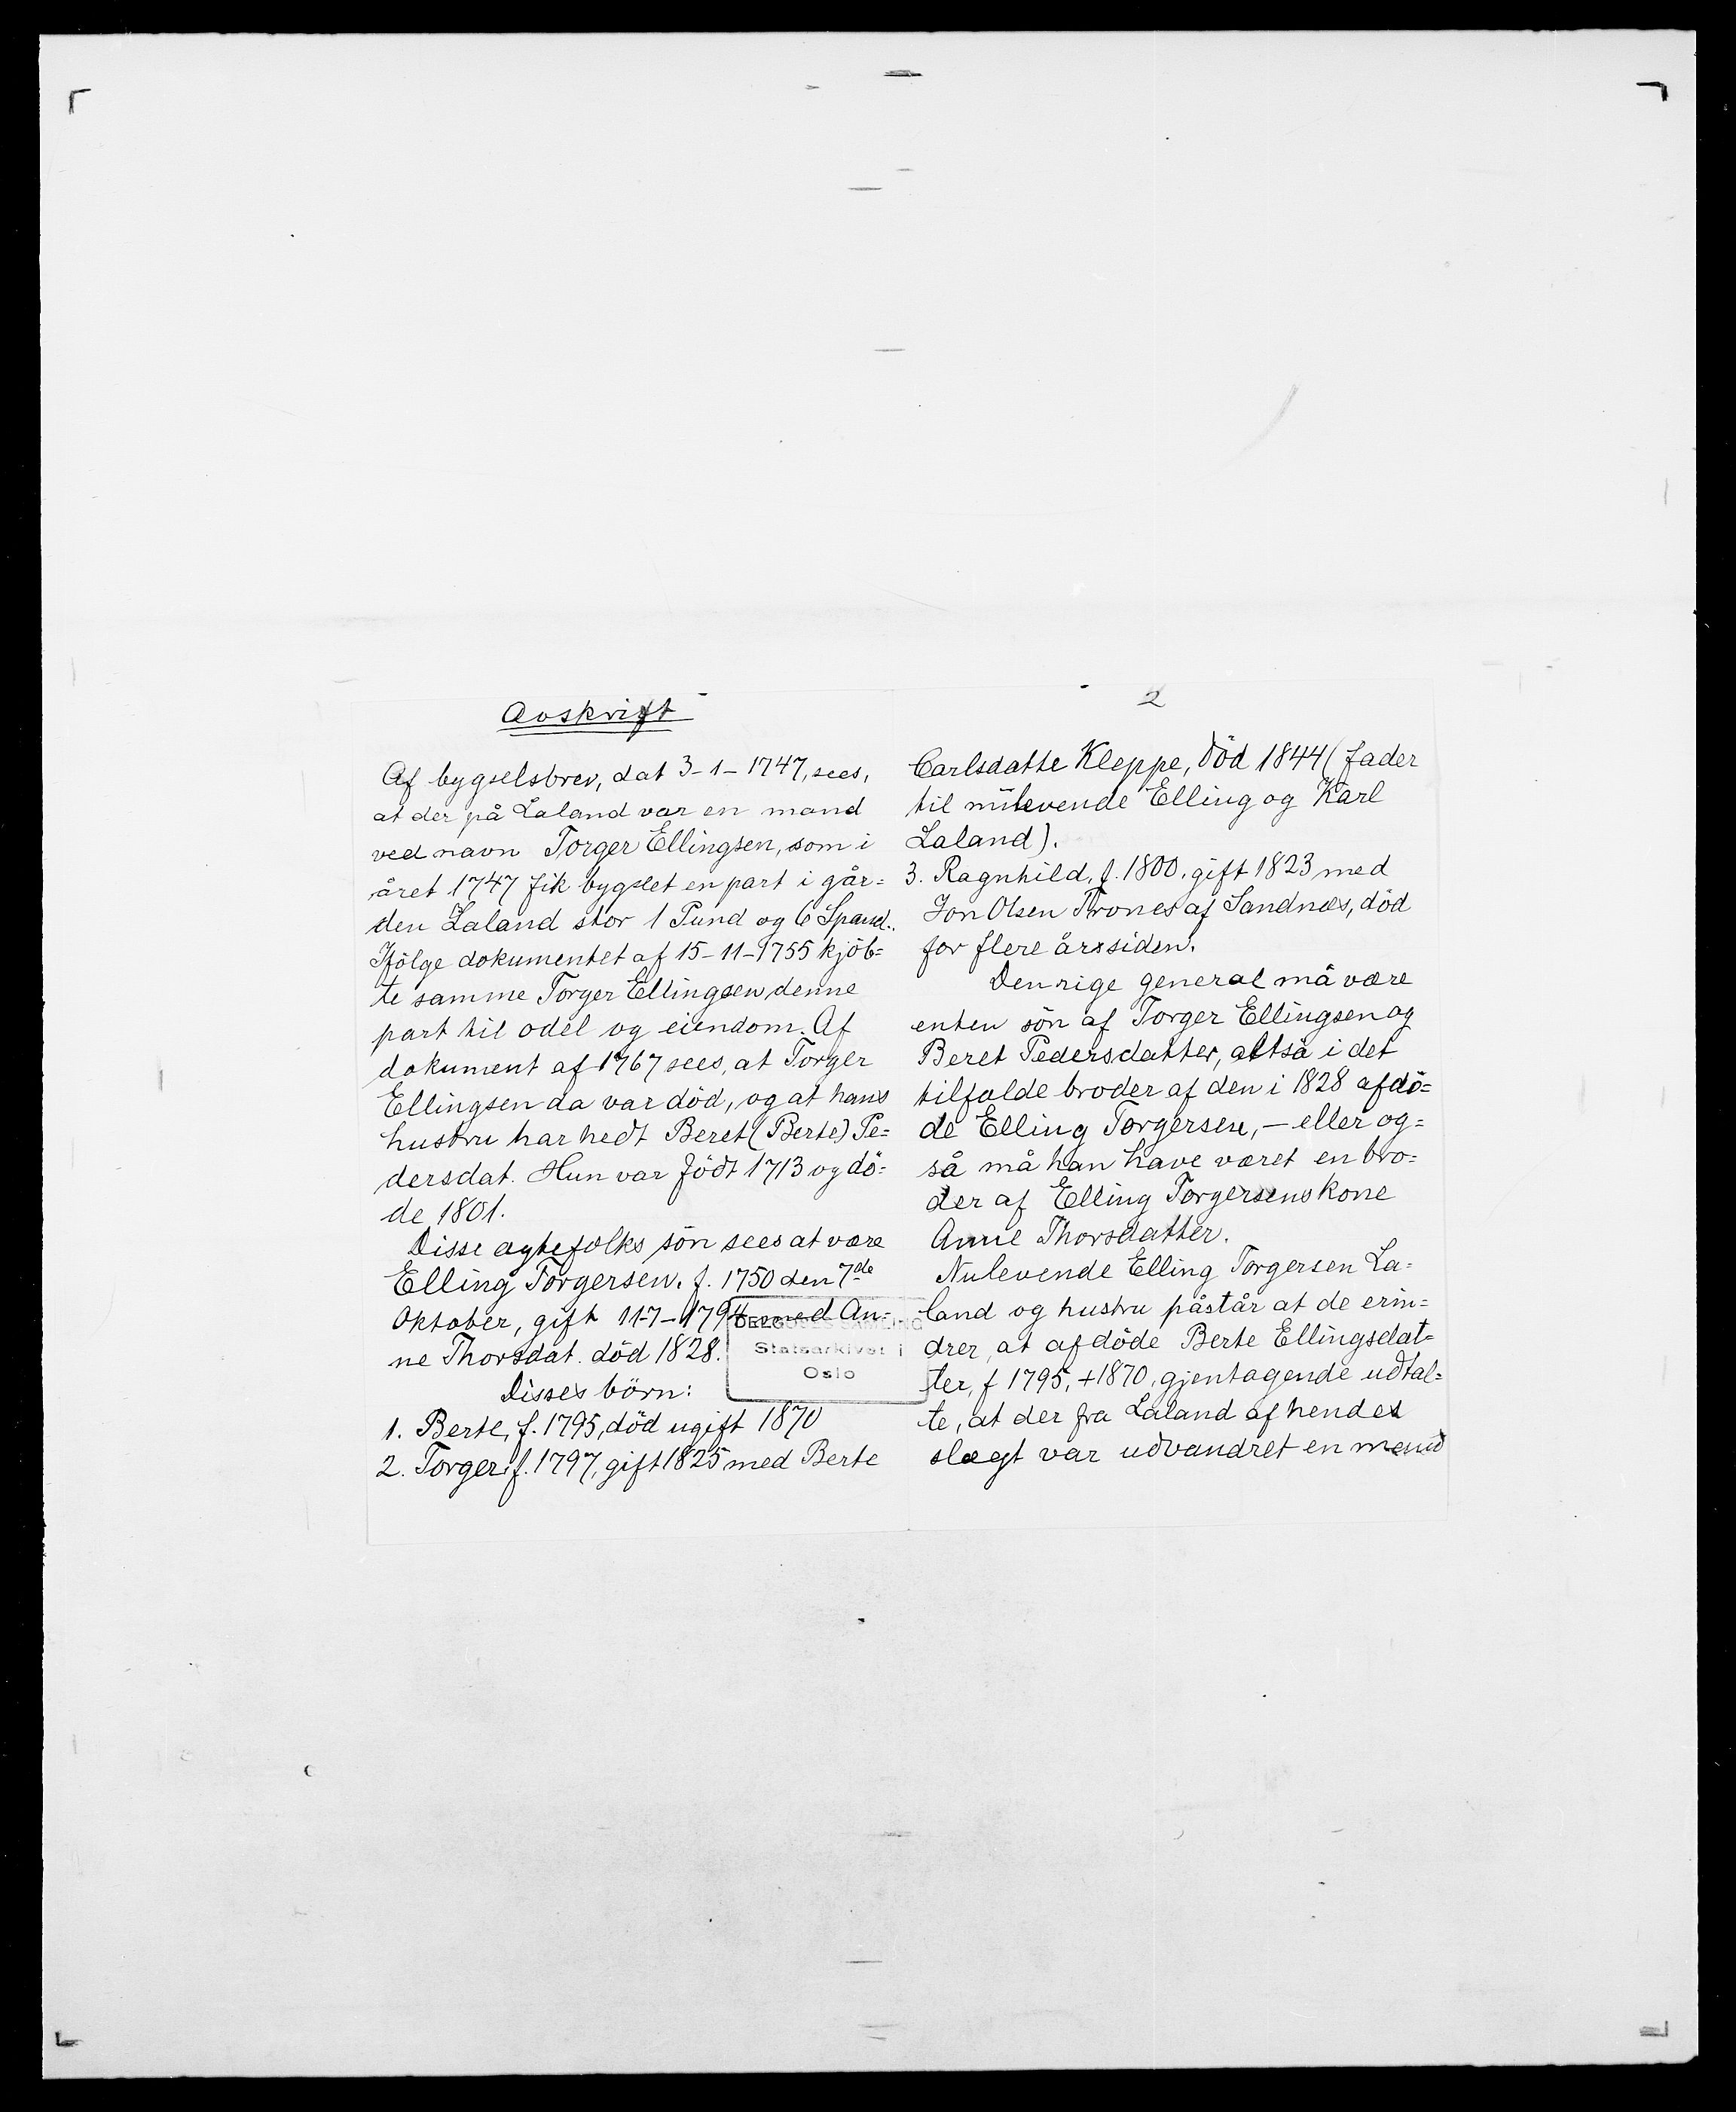 Avskrift
Af bygselsbrev, dat 3-1-1747, sees,
at der på Laland var en mand
ved navn Torger Ellingsen, som i
året 1747 fik bygslet en part i går=
den Laland stor 1 Pund og 6 Spand.
Ifölge dokumentet af 15-11-1755 kjöb=
te samme Torger Ellingsen denne
part til odel og eiendom. Af
dokument af 1767 sees, at Torger
Ellingsen da var död, og at hans
hustru har hedt Beret (Berte) Pe=
dersdat. Hun var födt 1713 og dö=
de 1801.
Disse ægtefolks sön sees at være
Elling Torgersen. f. 1750 den 7de
Oktober, gift 11-7-1794 med An=
ne Thorsdat. död 1828.
Disses börn:
1. Berte, f. 1795, död ugift 1870
2. Torger f. 1797, gift 1825 med Berte
DELGOBES SAMLING
Statsarkivet i
Oslo
2
Carlsdatte Kleppe, död 1844 (fader
til nulevende Elling og Karl
Laland).
3. Ragnhild, f. 1800, gift 1823 med
Jon Olsen Trones af Sandnæs, död
for flere årsiden.
Den rige general må være
enten sön af Torger Ellingsen og
Beret Pedersdatter, altså i det
tilfælde broder af den i 1828 afdö=
de Elling Torgersen, — eller og=
så må han have været en bro=
der af Elling Torgersens kone
Anne Thorsdatter.
Nulevende Elling Torgersen La=
land og hustru påstår at de erin=
drer, at afdöde Berte Ellingsdat=
ter, f 1795, +1870, gjentagende udtal=
te, at der fra Laland af hendes
slægt var udvandret en mand